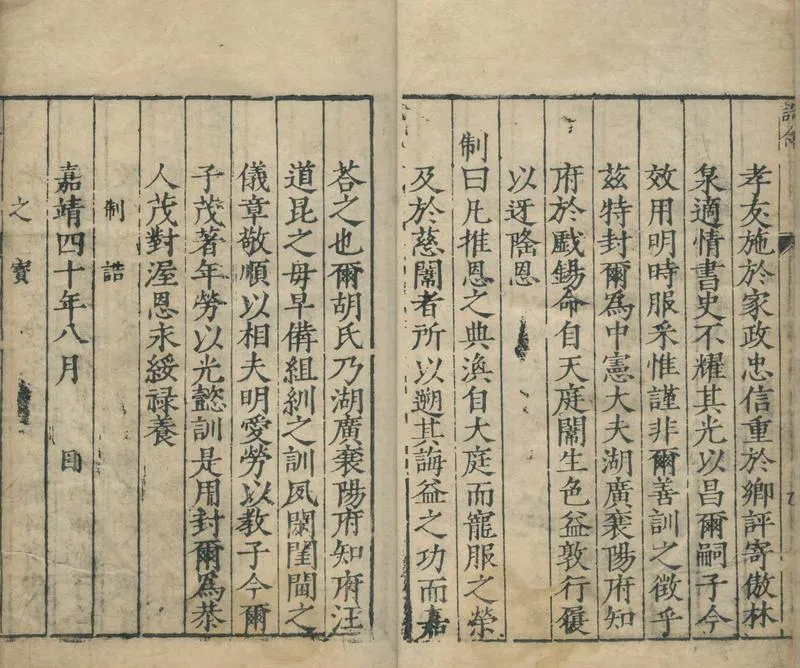 孝友施於家政忠信重於鄉評寄傲林
泉適情書史不耀其光以昌爾嗣子今
效用明時服采惟謹非爾善訓之徵乎
茲特封爾爲中憲大夫湖廣襄陽府知
府於戲錫命自天庭闈生色益敦行履
以迓隆恩
制曰凡推恩之典渙自大庭而寵服之榮
及於慈闈者所以遡其誨益之功而嘉
荅之也爾胡氏乃湖廣襄陽府知府汪
道昆之母早備組紃之訓夙閑閨閫之
儀章敬順以相夫明愛勞以教子今爾
子茂著年勞以光懿訓是用封爾爲恭
人茂對渥恩永綏禄養
制誥
嘉靖四十年八月 日
之寶